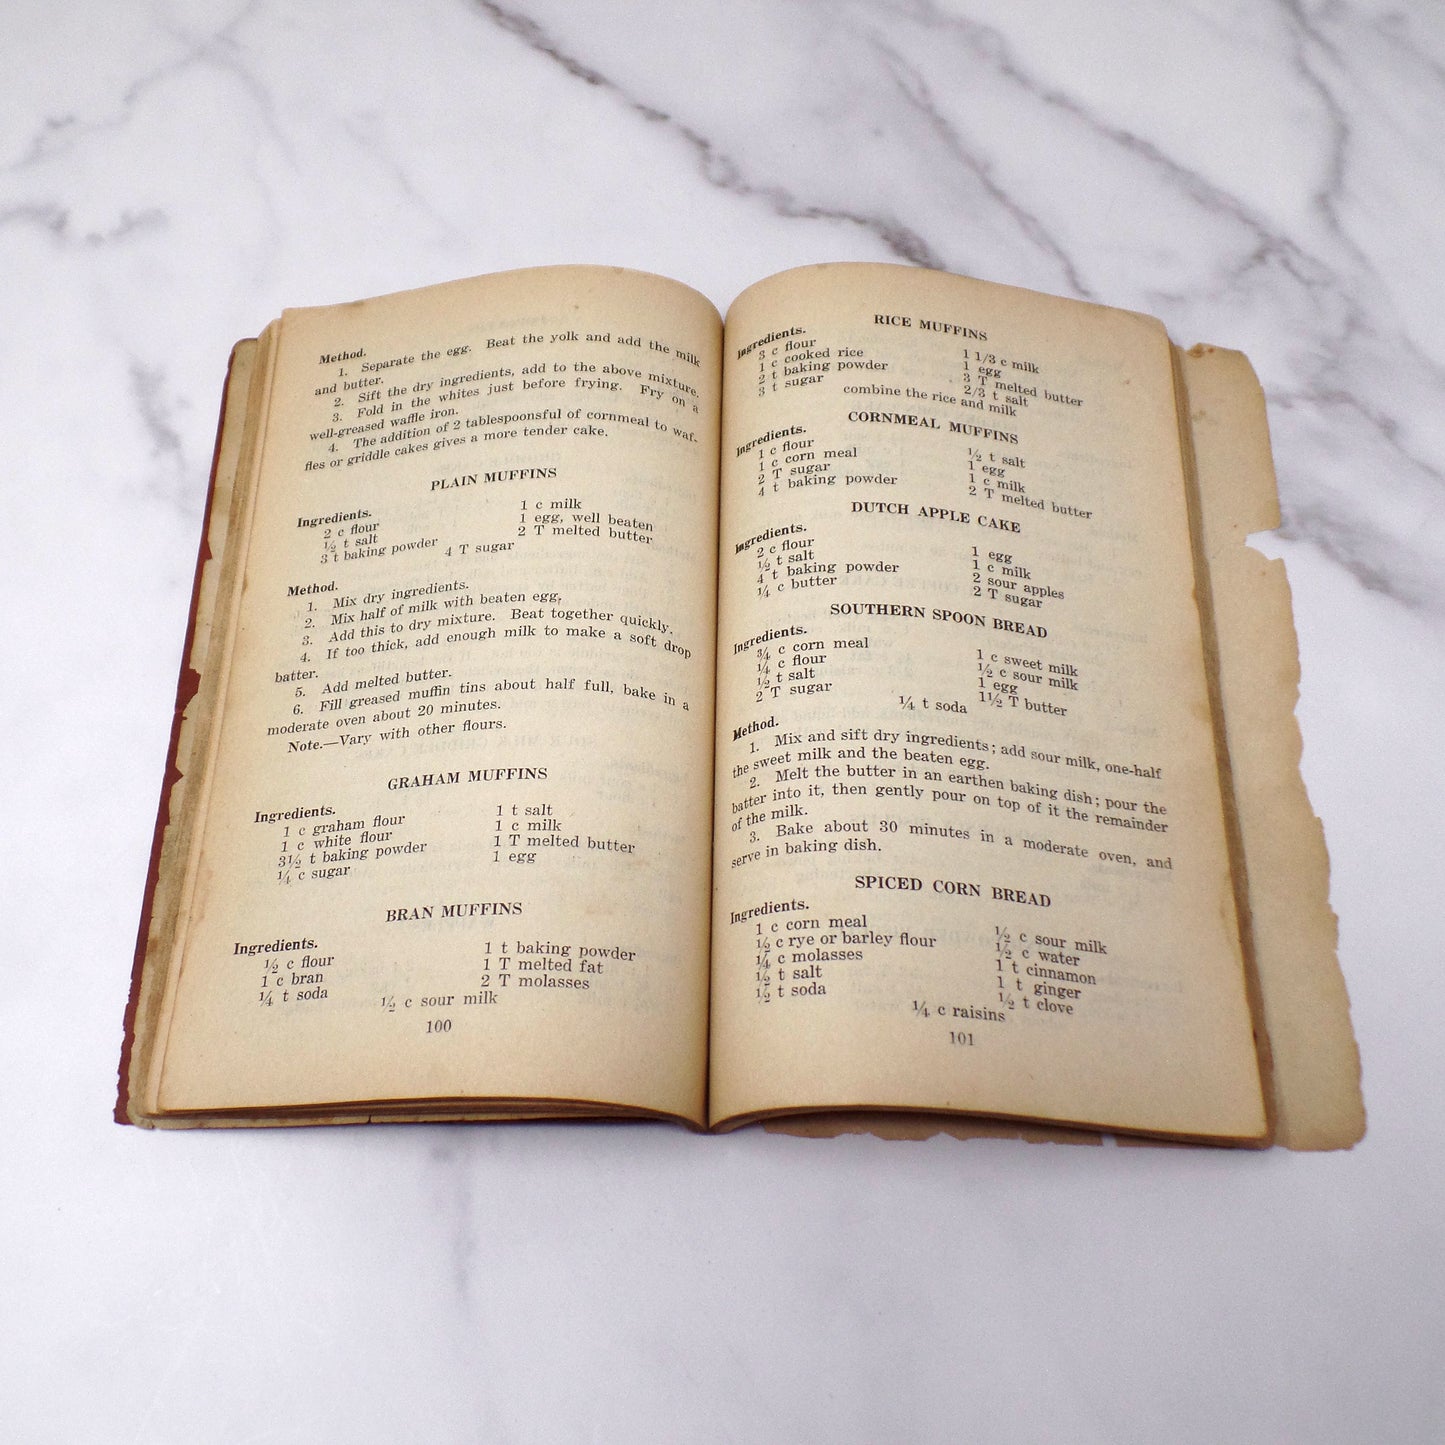 Method.
1. Separate the egg. Beat the yolk and add the milk
and butter.
2. Sift the dry ingredients, add to the above mixture.
3. Fold in the whites just before frying. Fry on a
well-greased waffle iron.
4. The addition of 2 tablespoonsful of cornmeal to waf-
fles or griddle cakes gives a more tender cake.
PLAIN MUFFINS
Ingredients.
2 c flour 1 c milk
½ t salt 1 egg, well beaten
3 t baking powder 2 T melted butter
4 T sugar
Method.
1. Mix dry ingredients.
2. Mix half of milk with beaten egg,
3. Add this to dry mixture. Beat together quickly.
4. If too thick, add enough milk to make a soft drop
batter.
5. Add melted butter.
6. Fill greased muffin tins about half full, bake in a
moderate oven about 20 minutes.
Note.—Vary with other flours.
GRAHAM MUFFINS
Ingredients.
1 c graham flour 1 t salt
1 c white flour 1 c milk
3½ t baking powder 1 T melted butter
¼ c sugar 1 egg
BRAN MUFFINS
Ingredients.
½ c flour 1 t baking powder
1 c bran 1 T melted fat
¼ t soda 2 T molasses
½ c sour milk
100
RICE MUFFINS
Ingredients.
3 c flour 1 1/3 c milk
1 c cooked rice 1 egg
2 t baking powder 3 T melted butter
3 t sugar 2/3 t salt
combine the rice and milk
CORNMEAL MUFFINS
Ingredients.
1 c flour ½ t salt
1 c corn meal 1 egg
2 T sugar 1 c milk
4 t baking powder 2 T melted butter
DUTCH APPLE CAKE
Ingredients.
2 c flour 1 egg
½ t salt 1 c milk
4 t baking powder 2 sour apples
¼ c butter 2 T sugar
SOUTHERN SPOON BREAD
Ingredients.
¾ c corn meal 1 c sweet milk
¼ c flour ½ c sour milk
½ t salt 1 egg
2 T sugar 1½ T butter
¼ t soda
Method.
1. Mix and sift dry ingredients; add sour milk, one-half
the sweet milk and the beaten egg.
2. Melt the butter in an earthen baking dish; pour the
batter into it, then gently pour on top of it the remainder
of the milk.
3. Bake about 30 minutes in a moderate oven, and
serve in baking dish.
SPICED CORN BREAD
Ingredients.
1 c corn meal ½ c sour milk
½ c rye or barley flour ½ c water
¼ c molasses 1 t cinnamon
½ t salt 1 t ginger
½ t soda ½ t clove
¼ c raisins
101